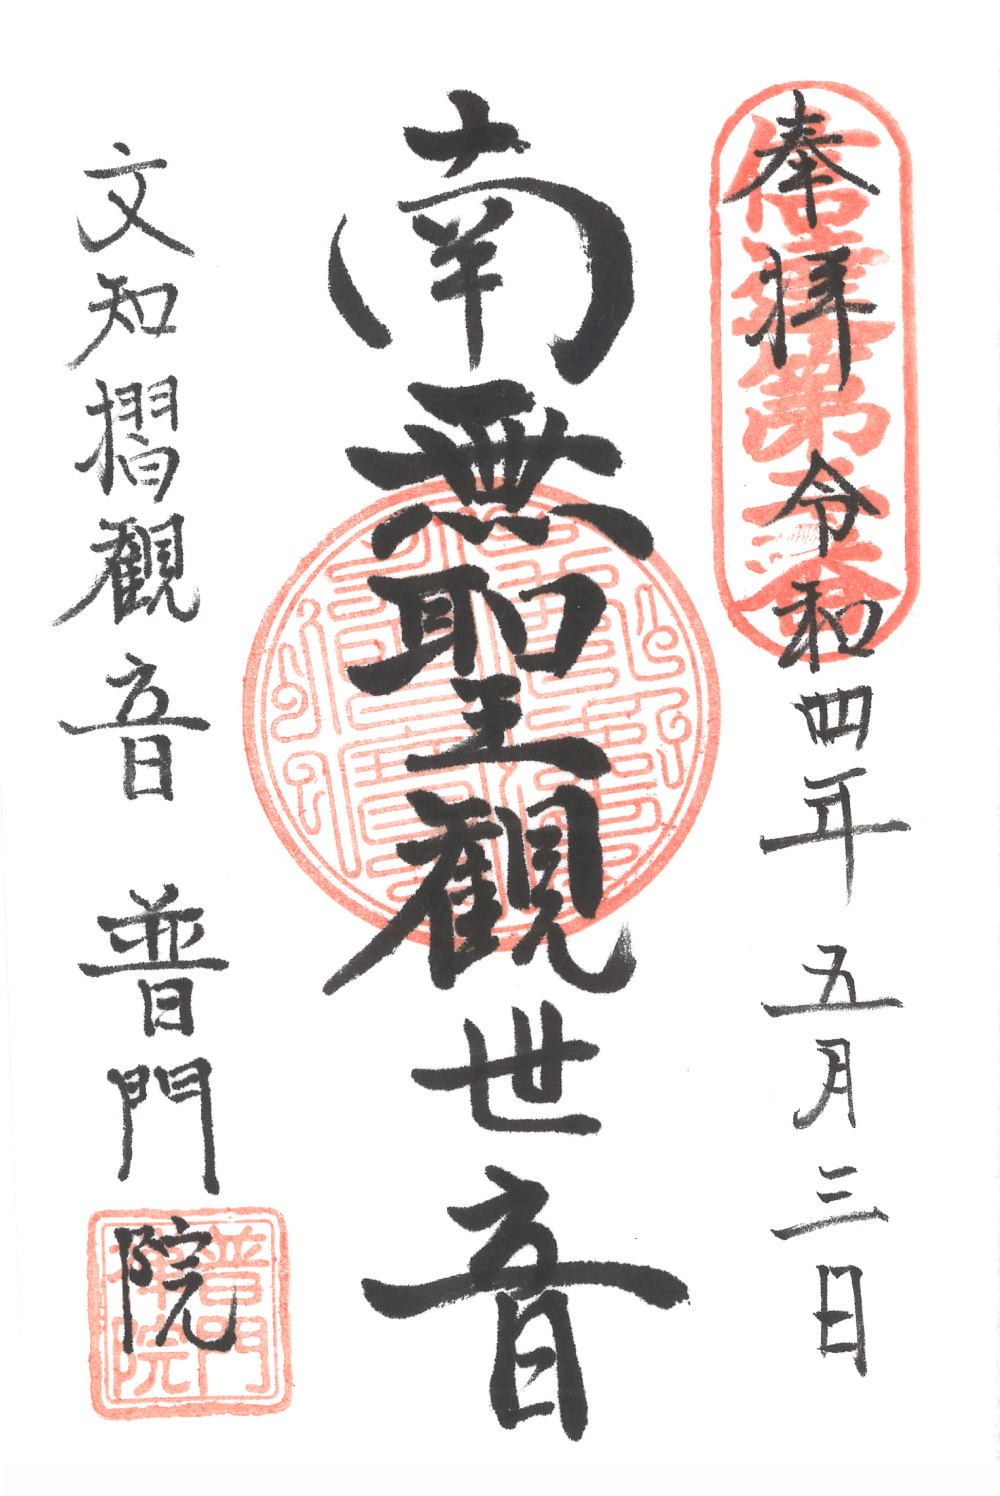 奉拝 令和四年五月三日
南無聖観世音
文知摺観音 普門院
普門
院